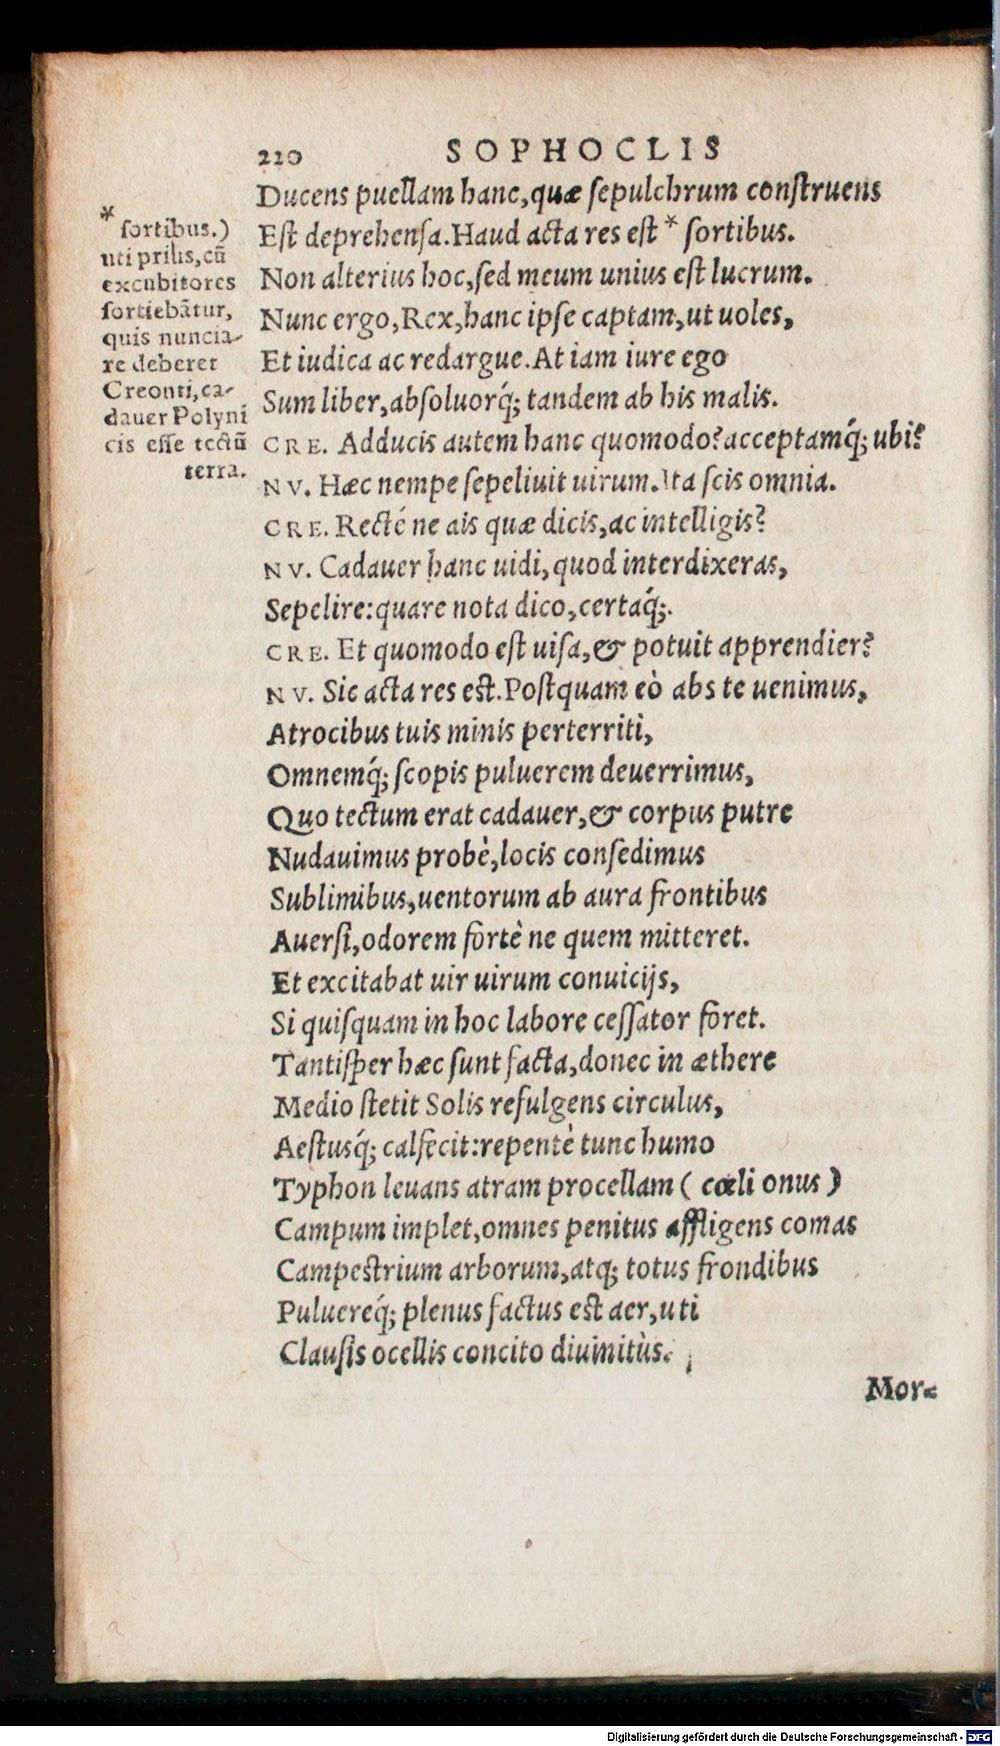 220 SOPHOCLIS
Ducens puellam hanc,quæ ſepulchrum conſtruens
Eſt deprehenſa.Haud acta res eſt * ſortibus.
Non alterius hoc,ſed meum unius eſt lucrum.
Nunc ergo,Rex,hanc ipſe captam,ut uoles,
Et iudica ac redargue.At iam iure ego
Sum liber,abſoluorq́; tandem ab his malis.
CRE. Adducis autem hanc quomodo?acceptamq́; ubi?
NV. Hæc nempe ſepeliuit uirum.Ita ſcis omnia.
CRE. Recté ne ais quæ dicis,ac intelligis?
NV. Cadauer hanc uidi,quod interdixeras,
Sepelire:quare nota dico,certaq́;.
CRE. Et quomodo eſt uiſa,& potuit apprendier?
NV. Sic acta res eſt.Poſtquam eò abs te uenimus,
Atrocibus tuis minis perterriti,
Omnemq́; ſcopis puluerem deuerrimus,
Quo tectum erat cadauer,& corpus putre
Nudauimus probè,locis conſedimus
Sublimibus,uentorum ab aura frontibus
Auerſi,odorem fortè ne quem mitteret.
Et excitabat uir uirum conuicijs,
Si quiſquam in hoc labore ceſſator foret.
Tantiſper hæc ſunt facta,donec in æthere
Medio ſtetit Solis refulgens circulus,
Aeſtusq́; calfecit:repentè tunc humo
Typhon leuans atram procellam ( cœli onus )
Campum implet,omnes penitus affligens comas
Campeſtrium arborum,atq; totus frondibus
Puluereq́; plenus factus eſt aer,uti
Clauſis ocellis concito diuinitùs.
Mor-
* ſortibus.)
uti prius,cũ
excubitores
ſortiebãtur,
quis nuncia-
re deberet
Creonti,ca-
dauer Polyni
cis eſſe tectũ
terra.
Digitalisierung gefördert durch die Deutsche Forschungsgemeinschaft - DFG